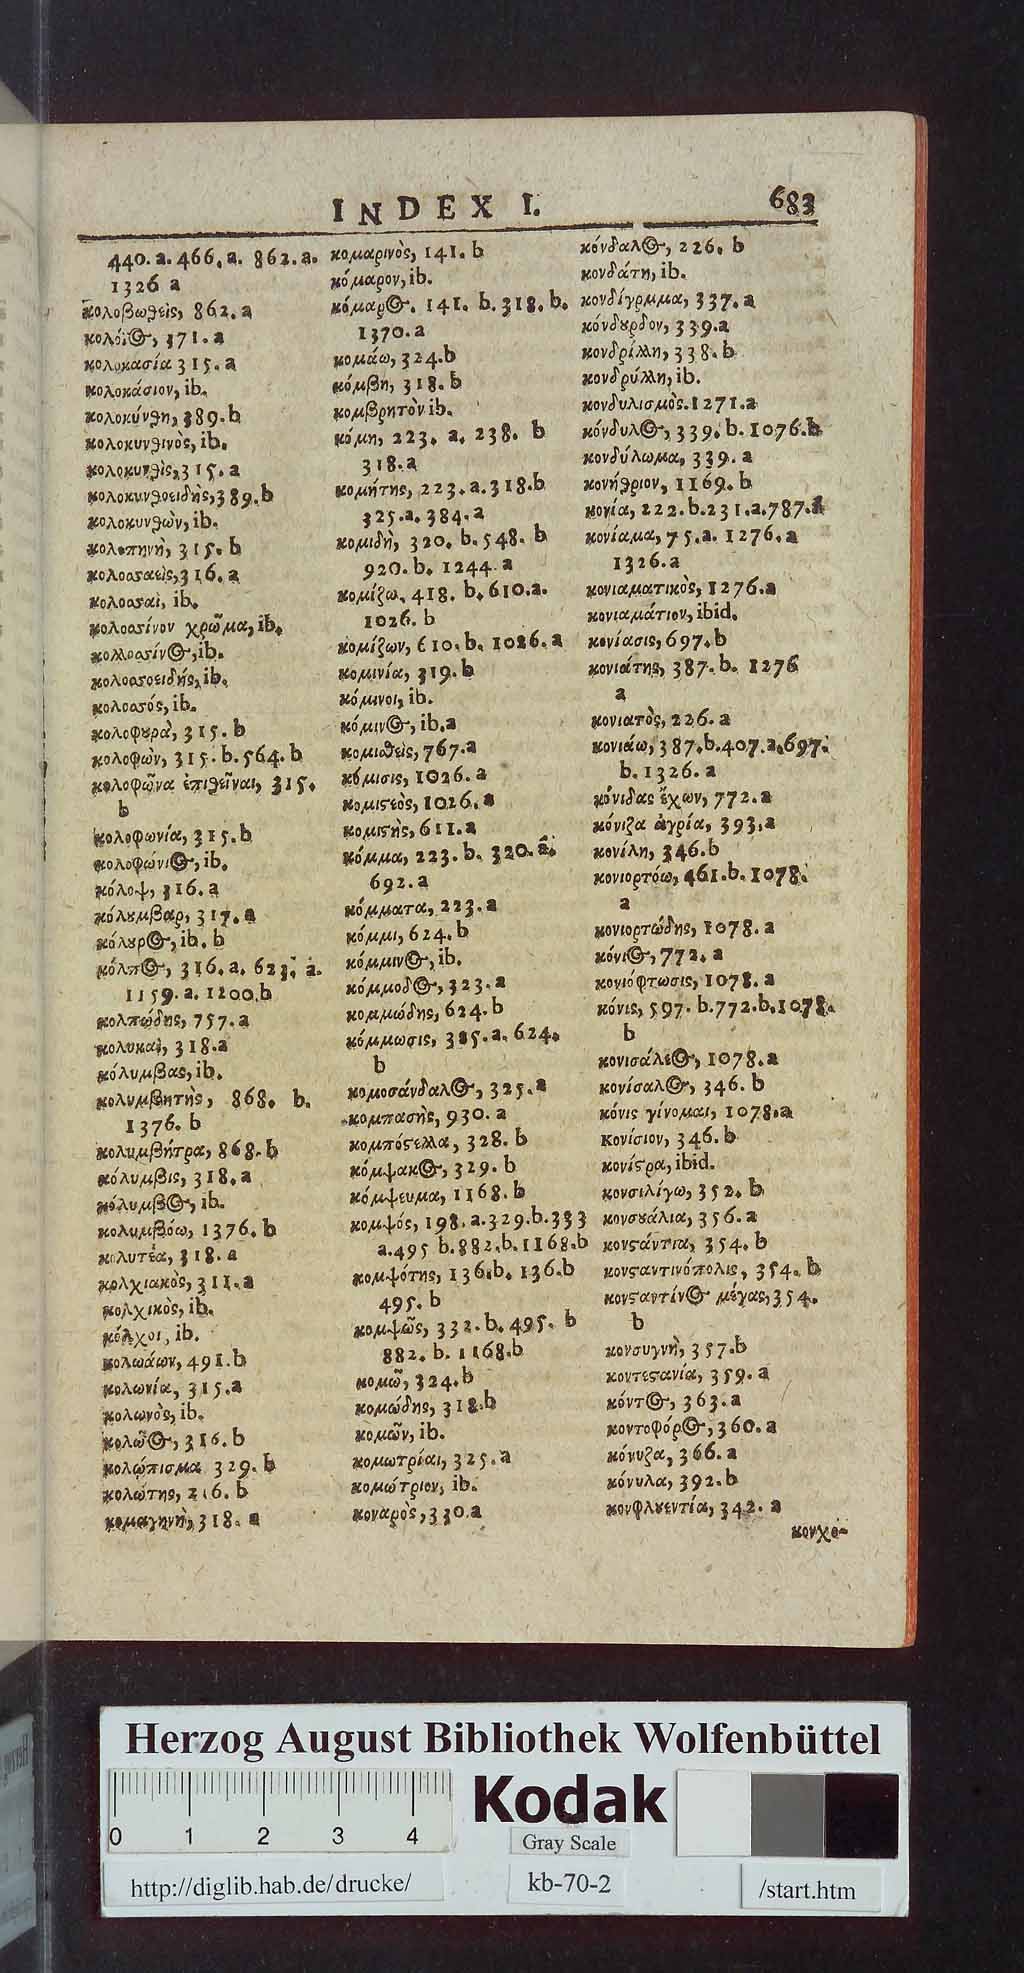 INDEX I. 683
440. a. 466. a. 862. a.
1326 a
κολοβωθεὶς, 862. a
κολόϊος, 371. a
κολοκασία 315. a
κολοκάσιον, ib.
κολοκύνθη, 389. b
κολοκυνθινὸς, ib.
κολοκυνθὶς, 315. a
κολοκυνθοειδὴς, 389. b
κολοκυνθὼν, ib.
κολοπηνὴ, 315. b
κολοσσαεὶς, 316. a
κολοσσαὶ, ib.
κολοσσίνον χρῶμα, ib.
κολλοσσίνος, ib.
κολοσσοειδής, ib.
κολοσσός, ib.
κολοφȣρὰ, 315. b
κολοφὼν, 315. b. 564. b
κολοφῶνα ἐπιθεῖναι, 315.
b
κολοφωνία, 315. b
κολοφώνιος, ib.
κόλοψ, 316. a
κόλȣμβαρ, 317. a
κόλȣρος, ib. b
κόλπος, 316. a. 623. a.
1159. a. 1200. b
κολπώδης, 757. a
κολυκαὶ, 318. a
κόλυμβας, ib.
κολυμβητὴς, 868. b.
1376. b
κολυμβήτρα, 868. b
κόλυμβις, 318. a
κόλυμβος, ib.
κολυμβόω, 1376. b
κολυτέα, 318. a
κολχιακὸς, 311. a
κολχικὸς, ib.
κόλχοι, ib.
κολωάων, 491. b
κολωνία, 315. a
κολωνὸς, ib.
κολῶος, 316. b
κολώπισμα 329. b
κολώτης, 216. b
κομαγηνὴ, 318. a
κομαρινὸς, 141. b
κόμαρον, ib.
κόμαρος. 141. b. 318. b.
1370. a
κομάω, 324. b
κόμβη, 318. b
κομβρητὸν ib.
κόμη, 223. a. 238. b
318. a
κομήτης, 223. a. 318. b
325. a. 384. a
κομιδὴ, 320. b. 548. b
920. b. 1244. a
κομίζω, 418. b. 610. a.
1026. b
κομίζων, 610. b. 1026. a
κομινία, 319. b
κόμινοι, ib.
κόμινος, ib. a
κομισθεὶς, 767. a
κόμισις, 1026. a
κομιϛεὸς, 1026. a
κομιϛὴς, 611. a
κόμμα, 223. b. 320. a.
692. a
κόμματα, 223. a
κόμμι, 624. b
κόμμινος, ib.
κόμμοδος, 323. a
κομμώδης, 624. b
κόμμωσις, 385. a. 624.
b
κομοσάνδαλος, 325. a
κομπασὴς, 930. a
κομπόϛελλα, 328. b
κόμψακος, 329. b
κόμψευμα, 1168. b
κομψός, 198. a. 329. b. 333
a. 495 b. 882. b. 1168. b
κομψότης, 136. b. 136. b
495. b
κομψῶς, 332. b. 495. b
882. b. 1168. b
κομῶ, 324. b
κομώδης, 318. b
κομῶν, ib.
κομωτρίαι, 325. a
κομώτριον, ib.
κοναρὸς, 330. a
κόνδαλος, 226. b
κονδάτη, ib.
κονδίγραμμα, 337. a
κόνδȣρδον, 339. a
κονδρίλλη, 338. b
κονδρύλλη, ib.
κονδυλισμὸς. 1271. a
κόνδυλος, 339. b. 1076. b
κονδύλωμα, 339. a
κονήθριον, 1169. b
κονία, 222. b. 231. a. 787. a
κονίαμα, 75. a. 1276. a
1326. a
κονιαματικὸς, 1276. a
κονιαμάτιον, ibid.
κονίασις, 697. b
κονιάτης, 387. b. 1276
a
κονιατὸς, 226. a
κονιάω, 387. b. 407. a. 697.
b. 1326. a
κόνιδας ἔχων, 772. a
κόνιζα ἀγρία, 393. a
κονίλη, 346. b
κονιορτόω, 461. b. 1078.
a
κονιορτώδης, 1078. a
κόνιος, 772. a
κονιόφτωσις, 1078. a
κόνις, 597. b. 772. b. 1078.
b
κονισάλεος, 1078. a
κονίσαλος, 346. b
κόνις γίνομαι, 1078. a
κονίσιον, 346. b
κονίϛρα, ibid.
κονσιλίγω, 352. b
κονσȣάλια, 356. a
κονϛάντια, 354. b
κονϛαντινόπολις, 354. b
κονϛαντίνος μέγας, 354.
b
κονσυγνὴ, 357. b
κοντεϛανία, 359. a
κόντος, 363. a
κοντοφόρος, 360. a
κόνυζα, 366. a
κόνυλα, 392. b
κονφλȣεντία, 342. a
κονχο-
Herzog August Bibliothek Wolfenbüttel
0 1 2 3 4
Kodak
Gray Scale
http://diglib.hab.de/drucke/
kb-70-2
/start.htm